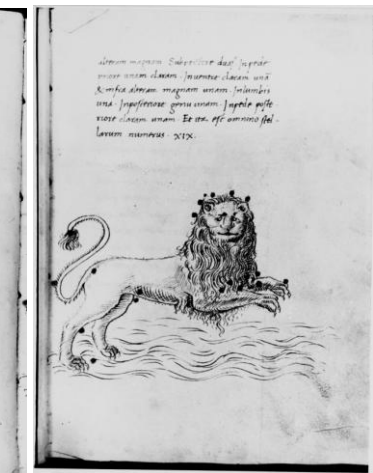 alteram magnam. Sub pectore duas. In pede
priore unam claram. In ventre claram unā
& infra alteram magnam unam. In lumbis
una. In posteriore genu unam. In pede poste
riore claram unam. Et ita est omnino stel
larum numerus. XIX.